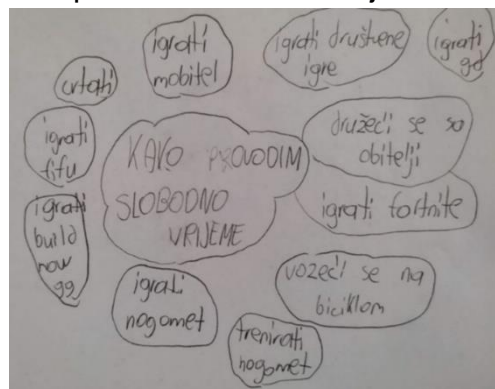 igrati
mobitel
igrati društvene
igre
igrati
gd
crtati
igrati
fifu
KAKO PROVODIM
SLOBODNO
VRIJEME
družeći se sa
obitelji
igrati fortnite
igrati
build
now
gg
igrati
nogomet
vozeći se na
biciklom
trenirati
nogomet